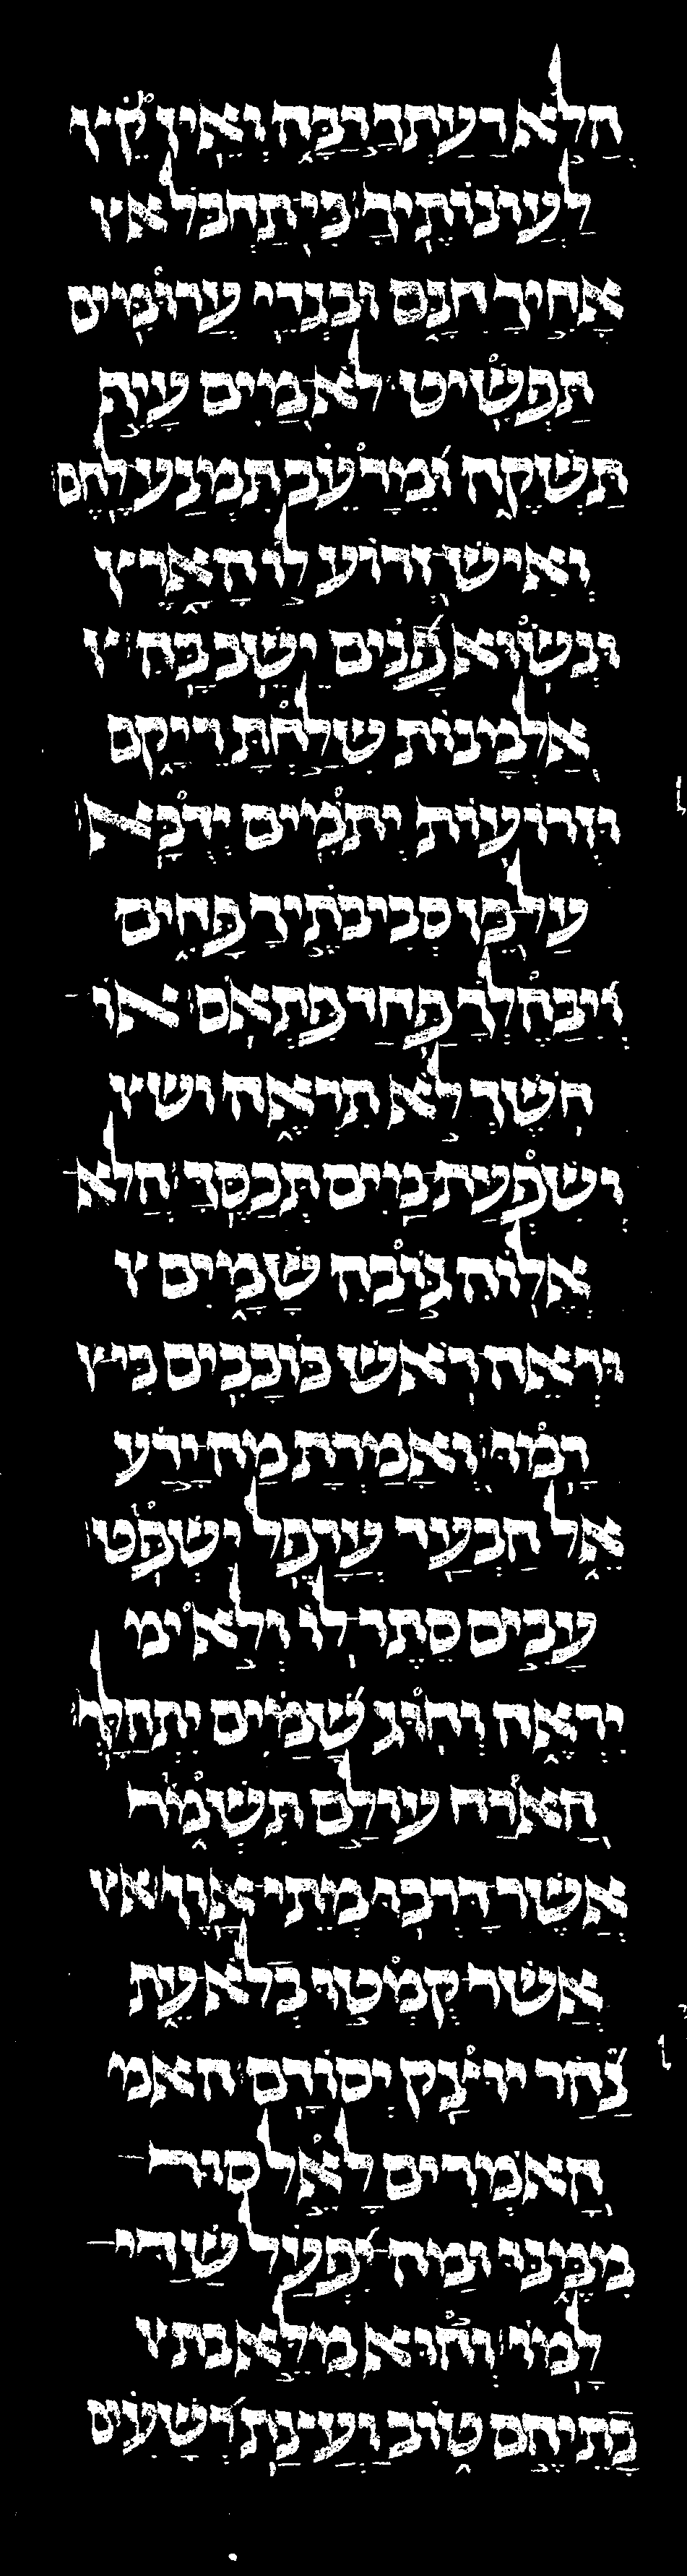 הלא רעתך רבה ואין קץ
לעונותיך כי תחבל א
אחיך חנם ובגדי ערומים
תפשיט לא מים עיף
תשקה ומרעב תמנע לחם
ואיש זרוע לו הארץ
ונשוא פנים ישב בה
אלמנות שלחת ריקם
וזרועות יתמים ידכא
על כן סביבתיך פחים
ויבהלך פחד פתאם או
חשך לא תראה וש
ושפעת מים תכסך הלא
אלוה גבה שמים
וראה ראש כוכבים כי
רמו ואמרת מה ידע
אל הבעד ערפל ישפט
עבים סתר לו ולא י
יראה וחוג שמים יתהלך
הארח עולם תשמר
אשר דרכו מתי און א
אשר קמטו בלא עת
נהר יוצק יסודם האמ
האמרים לאל סור
ממנו ומה יפעל שדי
למו והוא מלא בת
בתיהם טוב ועצת רשעים